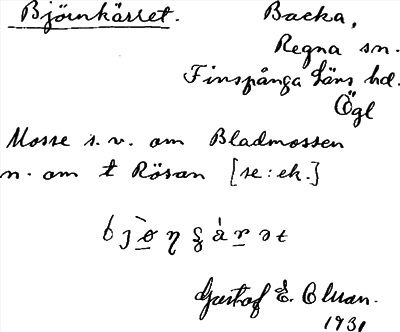 Björnkärret. Backa,
Regna sn.
Finspånga läns hd.
Ögl
Mosse s.v. om Bladmossen
n. om t Rösan [se: ek.]
Gustaf E. Olson.
1931